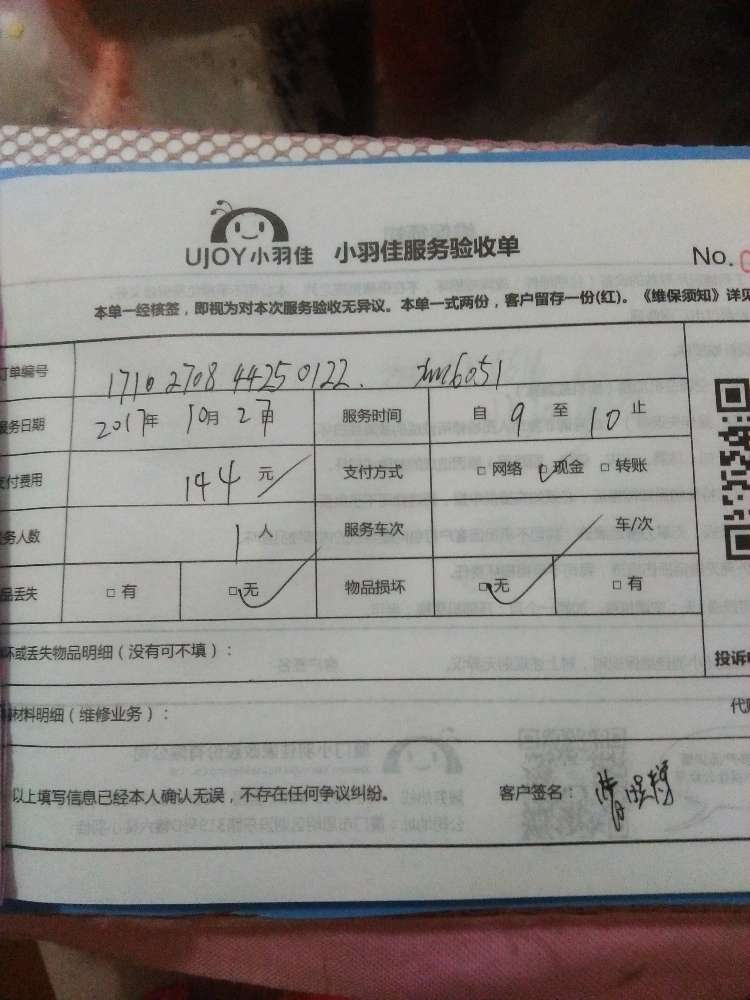 UJOY小羽佳 小羽佳服务验收单
No.
本单一经核签，即视为对本次服务验收无异议。本单一式两份，客户留存一份(红)。《维保须知》详见
订单编号 1710 2708 4425 0122. xm6051
服务日期 2017年 10月 27日 服务时间 自 9 至 10 止
支付费用 144 元 支付方式 □ 网络 ✓现金 □ 转账
务人数 1 人 服务车次 车/次
品丢失 □ 有 □无 ✓ 物品损坏 □无 ✓ □ 有
坏或丢失物品明细（没有可不填）：
投诉
材料明细（维修业务）：
代
以上填写信息已经本人确认无误，不存在任何争议纠纷。 客户签名：